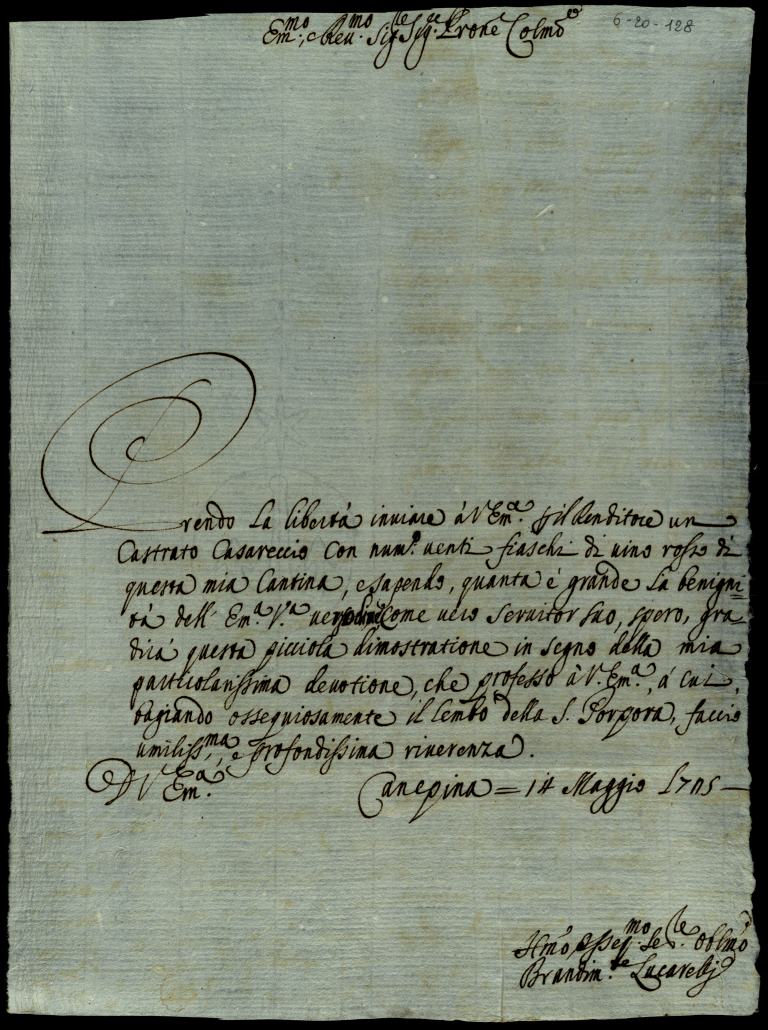 6-20-128
Em.mo, e Rev.mo Sig.re Sig.re Prone Colmo
Prendo la libertà inviare à V. Em.a p il Renditore un
Castrato Casareccio con num.o venti fiaschi di vino rosso di
questa mia Cantina, e sapendo, quanta è grande la benigni=
tà dell' Em.a V.a Come vero Servitor suo, spero, gra
dirà questa picciola dimostratione in segno della mia
particolarissima devotione, che professo à V. Em.a, à cui,
bagiando ossequiosamente il lembo della S. Porpora, faccio
umiliss.ma, e profondissima riverenza.
D V Em.a
Canepina = 14 Maggio 1705
Hmo, Se.re oblmo
Brandim.te Lucarelli